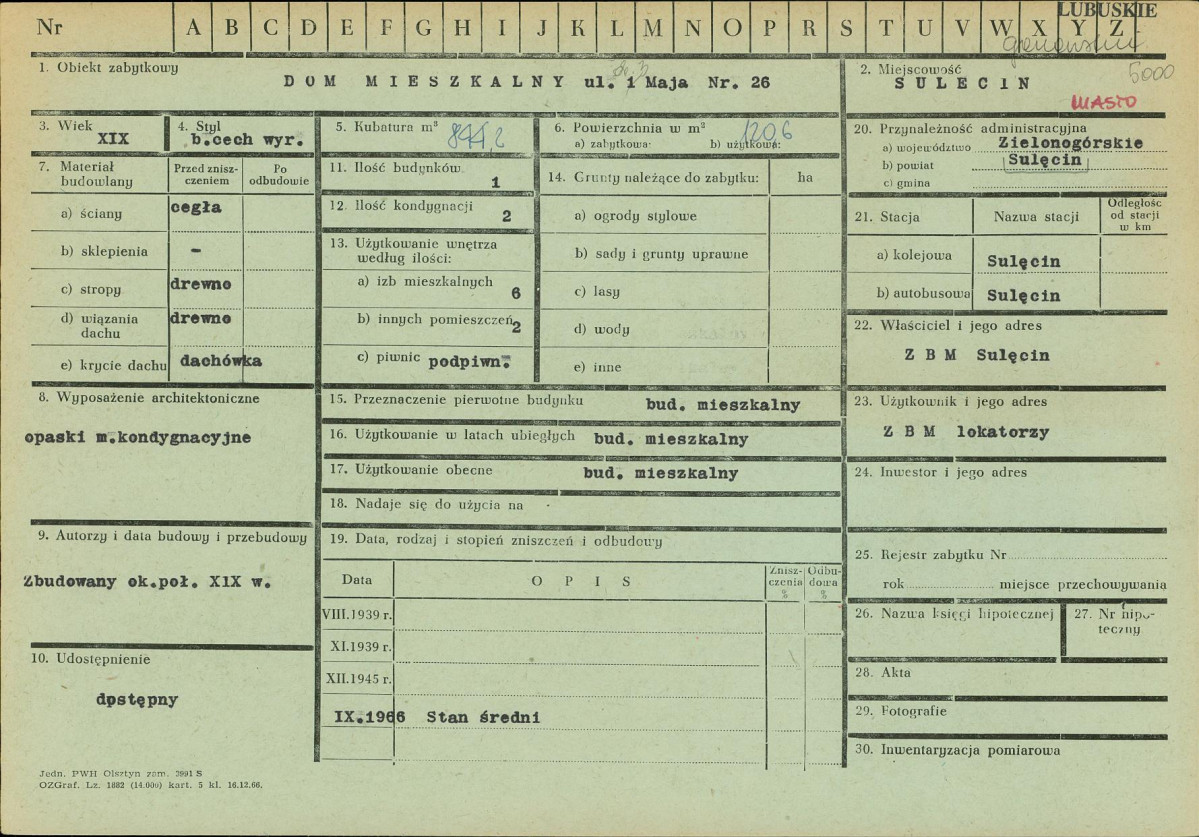 LUBUSKIE
Nr A B C D E F G H I J K L M N O P R S T U V W X Y Z
5000
1. Obiekt zabytkowy
DOM MIESZKALNY ul. 1 Maja Nr. 26
2. Miejscowość
SULECIN
MIASTO
3. Wiek
XIX
4. Styl
b.cech wyr.
5. Kubatura m³
6. Powierzchnia w m²
a) zabytkowa: b) użytkowa:
120,6
20. Przynależność administracyjna
a) województwo Zielonogórskie
b) powiat Sulęcin
c) gmina
7. Materiał budowlany
Przed zniszczeniem
Po odbudowie
a) ściany cegła
b) sklepienia -
c) stropy drewno
d) wiązania dachu drewno
e) krycie dachu dachówka
11. Ilość budynków 1
12. Ilość kondygnacji 2
13. Użytkowanie wnętrza
według ilości:
a) izb mieszkalnych 6
b) innych pomieszczeń 2
c) piwnic podpiwn.
14. Grunty należące do zabytku: ha
a) ogrody stylowe
b) sady i grunty uprawne
c) lasy
d) wody
e) inne
21. Stacja
Nazwa stacji
Odległość
od stacji
w km
a) kolejowa Sulęcin
b) autobusowa Sulęcin
22. Właściciel i jego adres
Z B M Sulęcin
8. Wyposażenie architektoniczne
opaski m.kondygnacyjne
15. Przeznaczenie pierwotne budynku bud. mieszkalny
16. Użytkowanie w latach ubiegłych bud. mieszkalny
17. Użytkowanie obecne bud. mieszkalny
18. Nadaje się do użycia na -
23. Użytkownik i jego adres
Z B M lokatorzy
24. Inwestor i jego adres
9. Autorzy i data budowy i przebudowy
Zbudowany ok.poł. XIX w.
19. Data, rodzaj i stopień zniszczeń i odbudowy
Data
O P I S
Znisz-
czenia
%
Odbu-
dowa
%
VIII.1939 r.
XI.1939 r.
XII.1945 r.
IX.1966 Stan średni
25. Rejestr zabytku Nr
rok miejsce przechowywania
26. Nazwa księgi hipotecznej
27. Nr hipo-
teczny
10. Udostępnienie
dostępny
28. Akta
29. Fotografie
30. Inwentaryzacja pomiarowa
Jedn. PWH Olsztyn zam. 3991 S
OZGraf. Lz. 1882 (14.000) kart. 5 kl. 16.12.66.